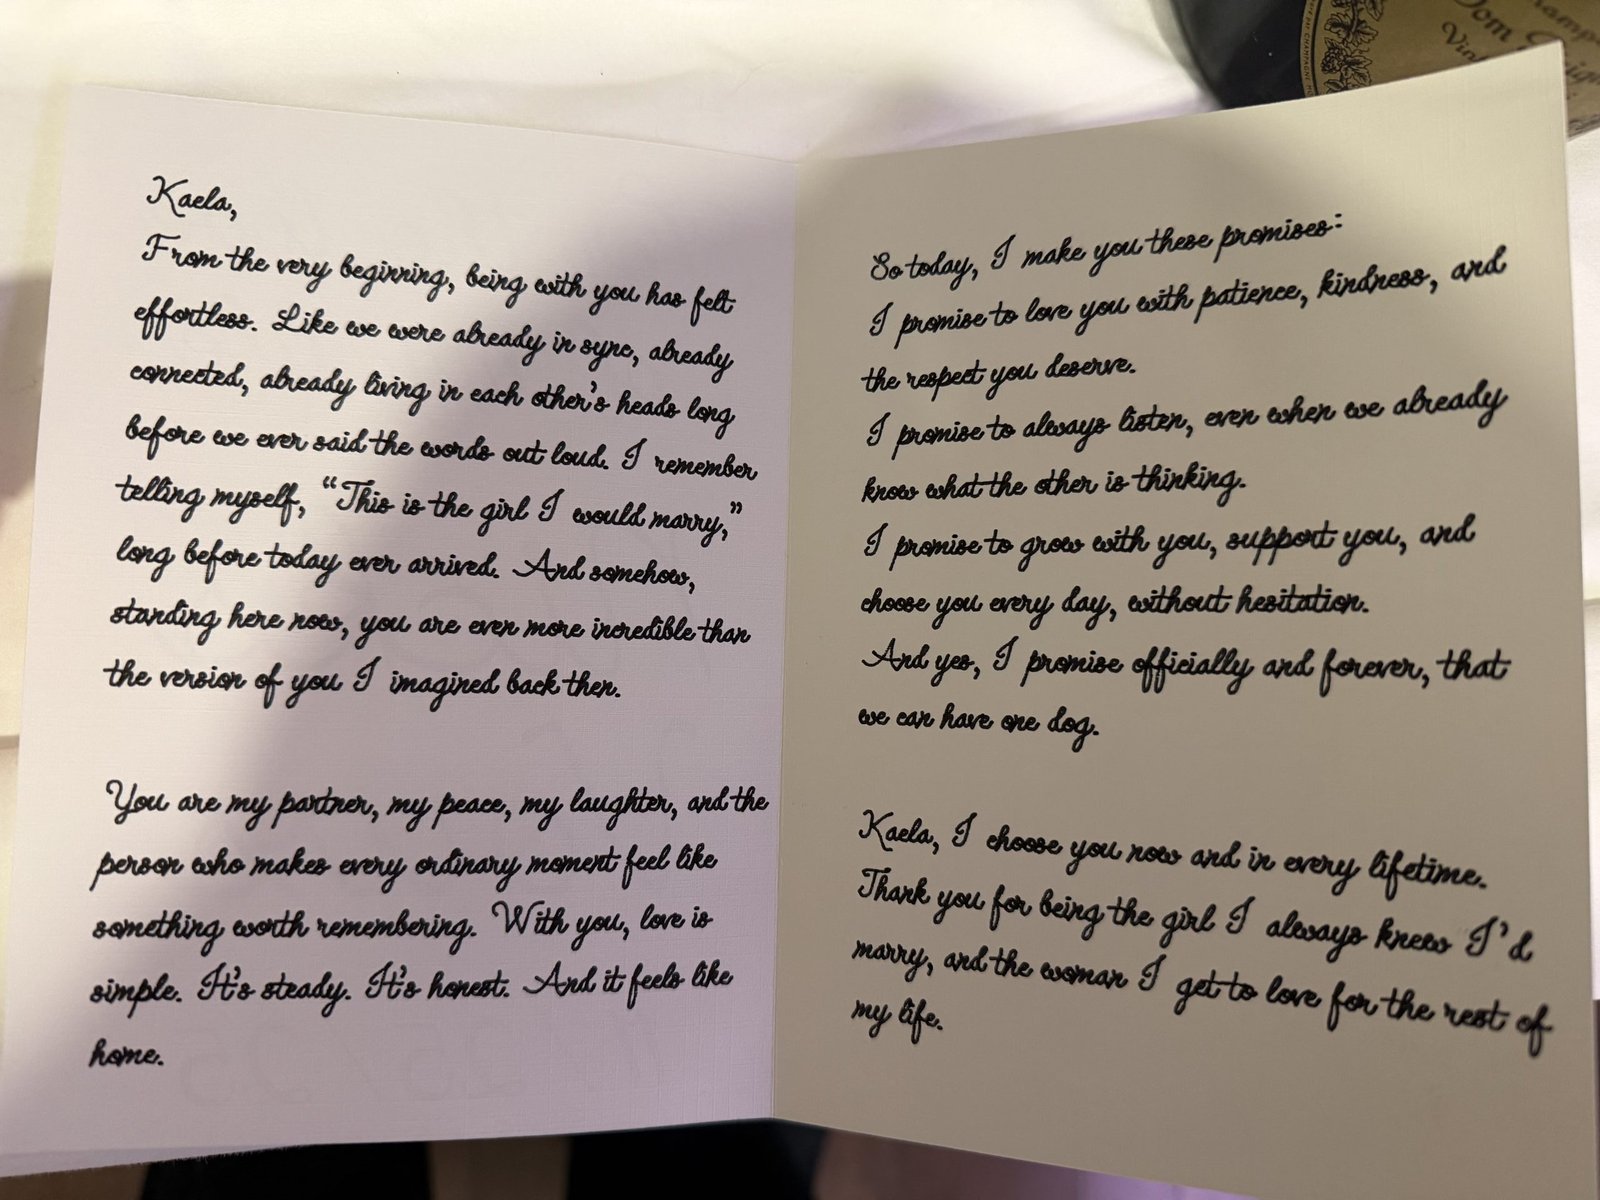 Kaela,
From the very beginning, being with you has felt
effortless. Like we were already in sync, already
connected, already living in each other's heads long
before we ever said the words out loud. I remember
telling myself, “This is the girl I would marry,”
long before today ever arrived. And somehow,
standing here now, you are even more incredible than
the version of you I imagined back then.
You are my partner, my peace, my laughter, and the
person who makes every ordinary moment feel like
something worth remembering. With you, love is
simple. It's steady. It's honest. And it feels like
home.
So today, I make you these promises:
I promise to love you with patience, kindness, and
the respect you deserve.
I promise to always listen, even when we already
know what the other is thinking.
I promise to grow with you, support you, and
choose you every day, without hesitation.
And yes, I promise officially and forever, that
we can have one dog.
Kaela, I choose you now and in every lifetime.
Thank you for being the girl I always knew I'd
marry, and the woman I get to love for the rest of
my life.
Dom